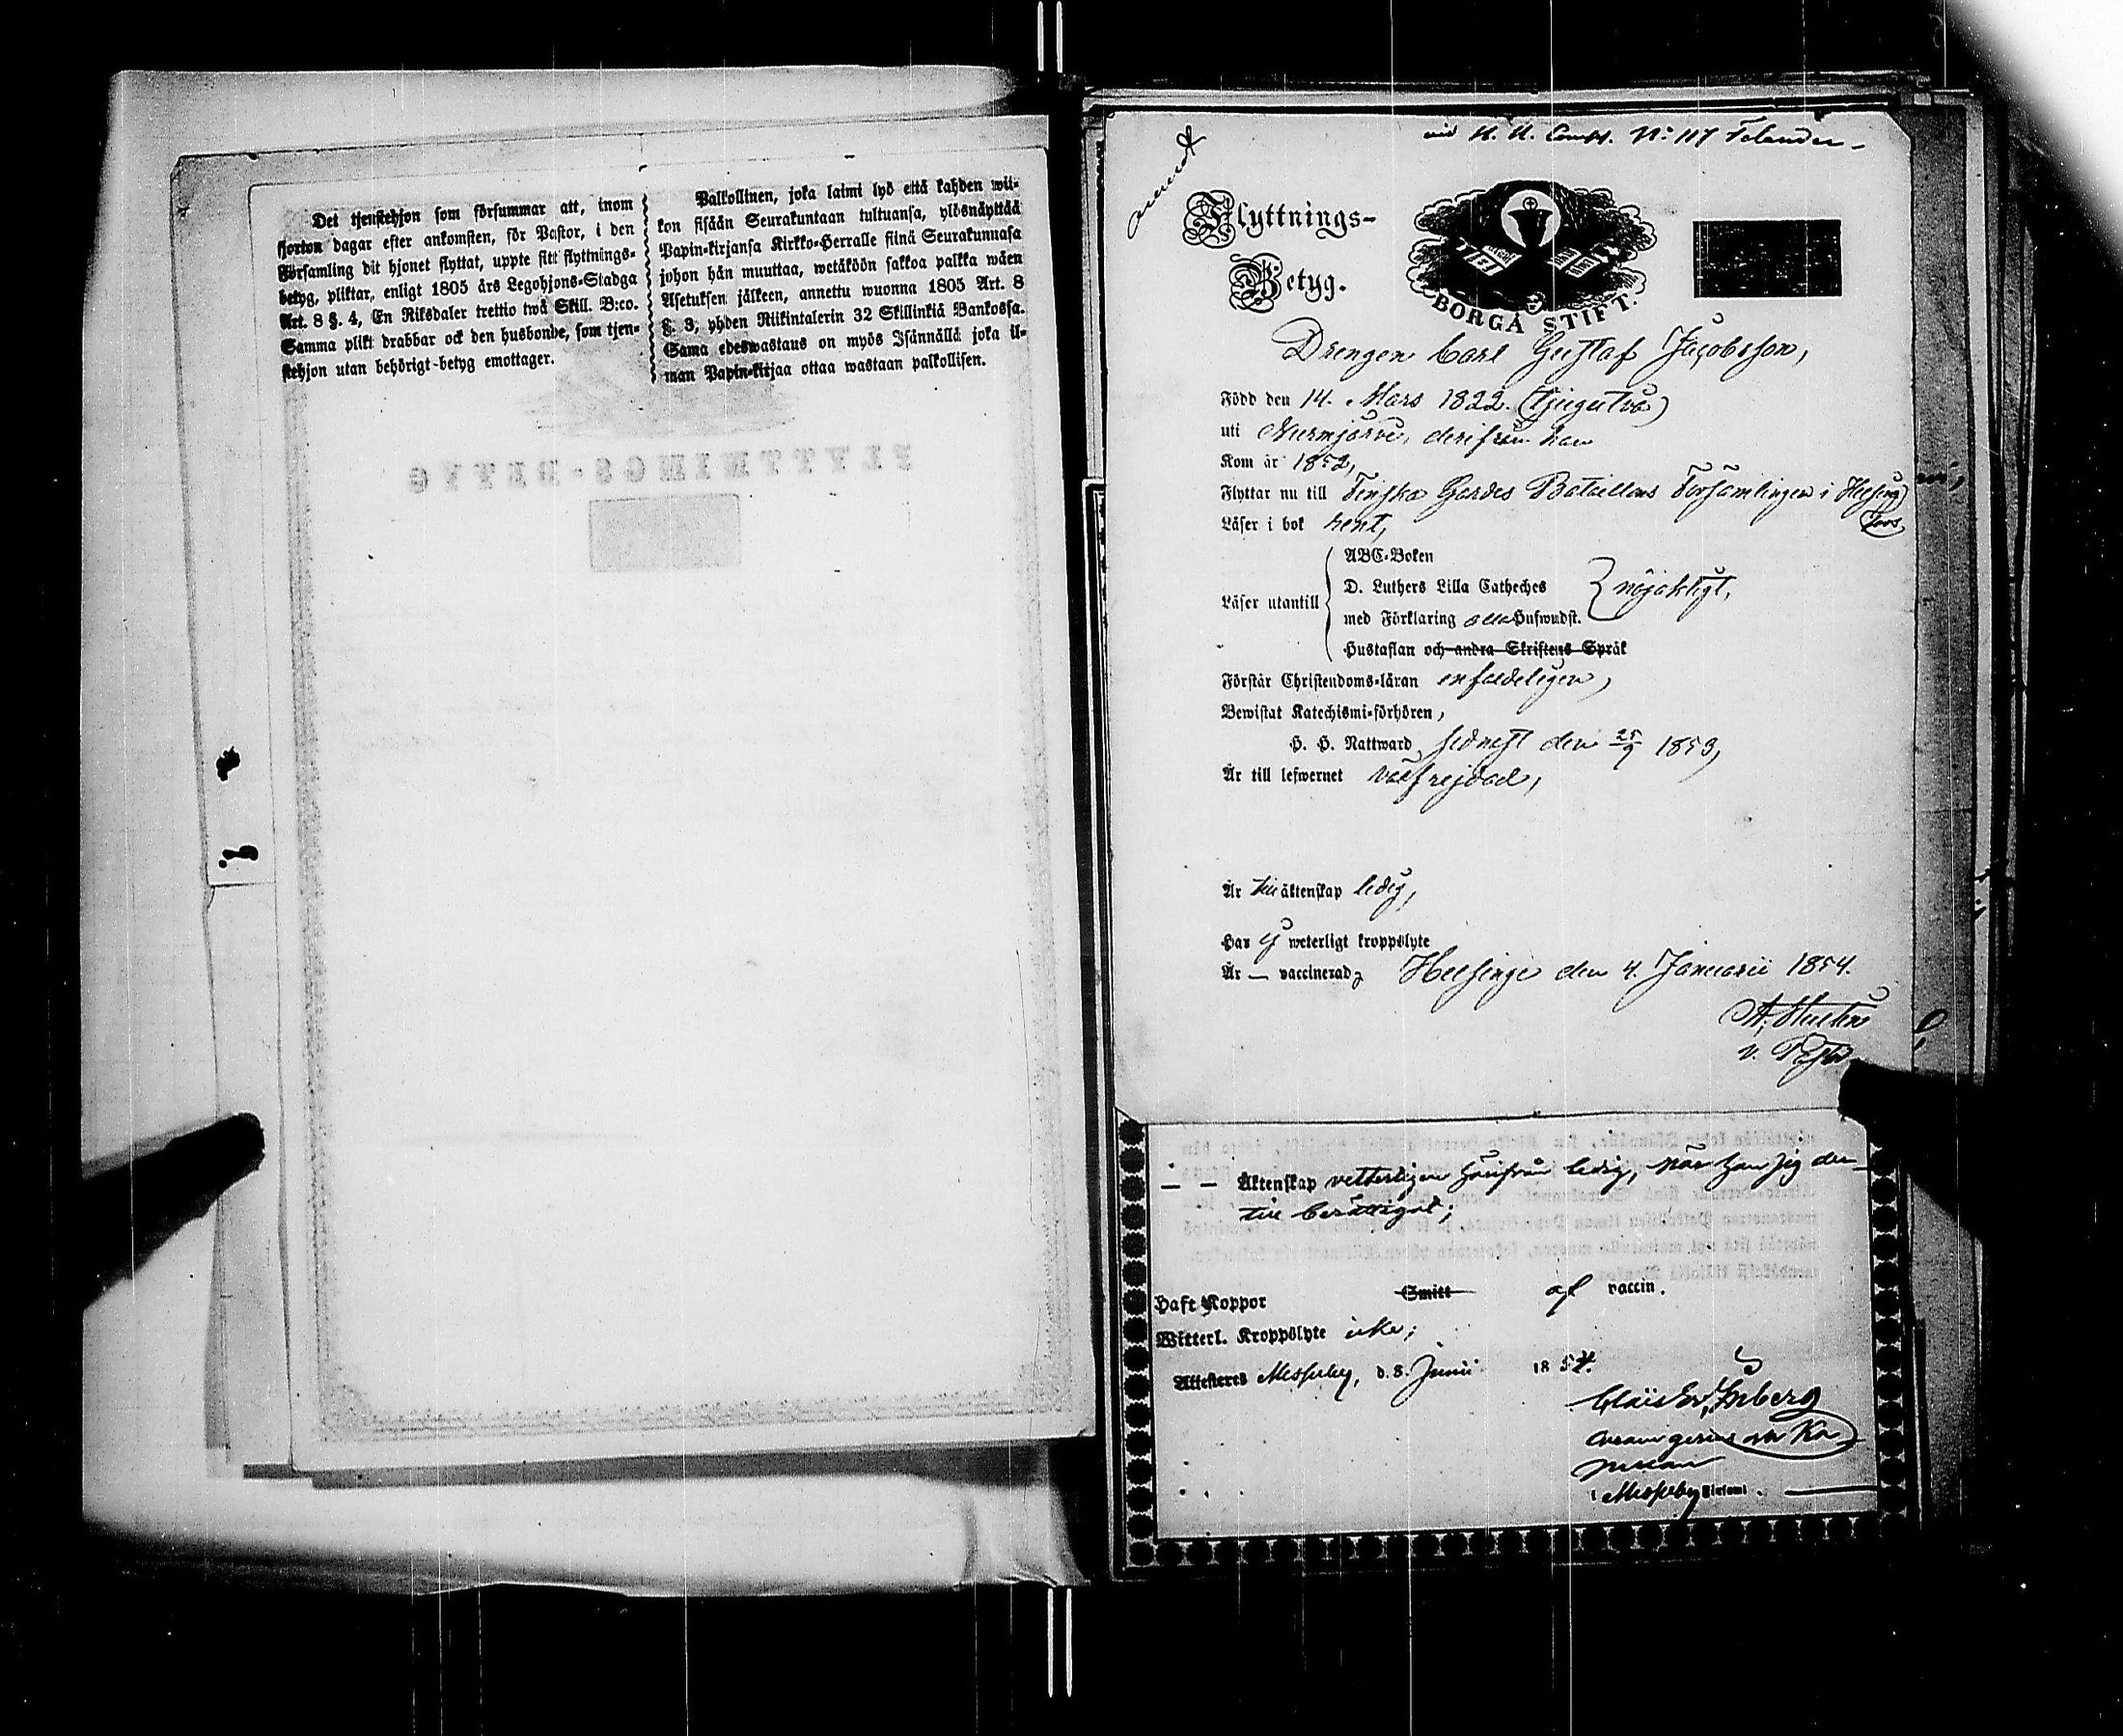 Det tjenstehjon som försummar att, inom
fjorton dagar efter ankomsten, för Pastor, i den
Församling dit hjonet flyttat, uppte sitt flyttnings-
betyg, pliktar, enligt 1805 års Legohjons-Stadga
Art. 8 §. 4, En Riksdaler trettio twå Skill. B:co.
Samma plikt drabbar ock den husbonde, som tjen-
stehjon utan behörigt betyg emottager.
Palkollinen, joka laimi lyö että kahden wii-
kon sisään Seurakuntaan tultuansa, ylösnäyttää
Papin-kirjansa Kirkko-Herralle siinä Seurakunnasa
johon hän muuttaa, wetäköön sakkoa palkka wäen
Asetuksen jälkeen, annettu wuonna 1805 Art. 8
§. 3, yhden Riikintalerin 32 Skillinkiä Bankossa.
Sama edeswastaus on myös Isännällä joka il-
man Papin-kirjaa ottaa wastaan palkollisen.
FLYTTNINGS-BETYG
vid U. U. Comp. No 117 Felander
Flyttnings-
Betyg.
BORGÅ STIFT.
Drengen Carl Gustaf Jacobsson,
Född den 14. Mars 1822. (tjugutvå)
uti Nurmijärvi, derifrån han
Kom år 1852,
Flyttar nu till Finska Gardes Bataillons Församlingen i Helsing
fors,
Läser i bok rent,
ABC-Boken
D. Luthers Lilla Catheches
Läser utantill
nöjaktigt,
med Förklaring alla Hufwudst.
Hustaflan och andra Skriftens Språk
Förstår Christendoms-läran enfaldeligen,
Bewistat Katechismi-förhören,
H. H. Nattward, sednast den 25/9 1853,
Är till lefwernet välfrejdad,
Är till äktenskap ledig,
Har ej weterligt kroppslyte
Är — vaccinerad, Helsinge den 4. Januarii 1854.
v. Pastor
Äktenskap vetterligen härifrån ledig, när han sig der-
till berättigat;
Haft Koppor Smitt af vaccin.
Witterl. Kroppslyte icke;
Attesteras Messuby, d. 8. Junii 1854.
i Messuby